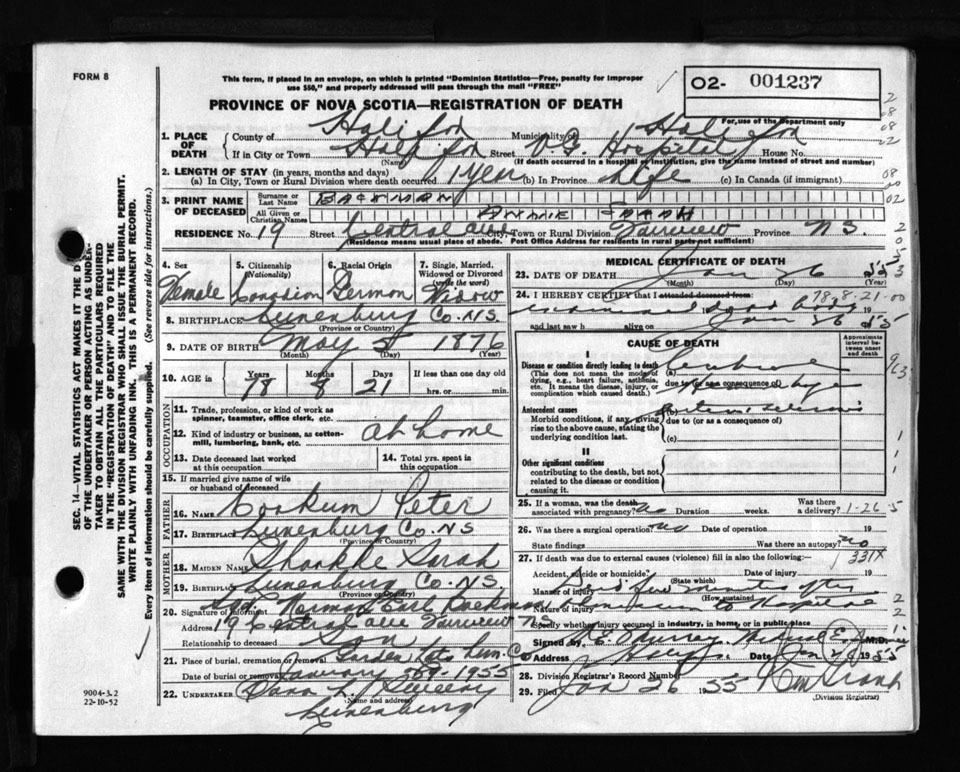 FORM 8
This form, if placed in an envelope, on which is printed "Dominion Statistics—Free, penalty for improper
use $50," and properly addressed will pass through the mail "FREE"
O2- 001237
For use of the Department only
PROVINCE OF NOVA SCOTIA—REGISTRATION OF DEATH
1. PLACE OF DEATH
County of Halifax Municipality of Halifax
If in City or Town Halifax Street V.G. Hospital House No.
(Name) (If death occurred in a hospital or institution, give the name instead of street and number)
2. LENGTH OF STAY (in years, months and days)
(a) In City, Town or Rural Division where death occurred 1 year (b) In Province Life (c) In Canada (if immigrant)
3. PRINT NAME OF DECEASED
Surname or Last Name BACKMAN
All Given or Christian Names ANNIE
RESIDENCE No. 19 Street Central Ave City, Town or Rural Division Fairview Province N.S.
(Residence means usual place of abode. Post Office Address for residents in rural parts not sufficient)
4. Sex Female
5. Citizenship (Nationality) Canadian
6. Racial Origin German
7. Single, Married, Widowed or Divorced (write the word) Widow
8. BIRTHPLACE Lunenburg Co. N.S.
(Province or Country)
9. DATE OF BIRTH May 5 1876
(Month) (Day) (Year)
10. AGE in Years Months Days If less than one day old
78 8 21 hrs. or min.
OCCUPATION
11. Trade, profession, or kind of work as
spinner, teamster, office clerk, etc.
12. Kind of industry or business, as cotton-
mill, lumbering, bank, etc. at home
13. Date deceased last worked
at this occupation
14. Total yrs. spent in
this occupation
15. If married give name of wife
or husband of deceased
FATHER
16. NAME Peter
17. BIRTHPLACE Lunenburg Co. N.S.
(Province or Country)
MOTHER
18. MAIDEN NAME Sarah
19. BIRTHPLACE Lunenburg Co. N.S.
(Province or Country)
20. Signature of informant Norman Earl Backman
Address 19 Central Ave Fairview N.S.
Relationship to deceased Son
21. Place of burial, cremation or removal Garden Lots Lun. Co
Date of burial or removal January 1955
22. UNDERTAKER Dana L. Sweeny
(Name and address)
Lunenburg
MEDICAL CERTIFICATE OF DEATH
23. DATE OF DEATH Jan 26 1955
(Month) (Day)
24. I HEREBY CERTIFY that I attended deceased from: 78.8.21-00
examined dead body 19
and last saw h alive on Jan 26 1955
CAUSE OF DEATH
Approximate interval between onset and death
I
Disease or condition directly leading to death
(This does not mean the mode of
dying, e.g., heart failure, asthenia,
etc. It means the disease, injury, or
complication which caused death.)
(a) Cerebral
due to (or as a consequence of)
Antecedent causes
Morbid conditions, if any, giving
rise to the above cause, stating the
underlying condition last.
(b)
due to (or as a consequence of)
(c)
II
Other significant conditions
contributing to the death, but not
related to the disease or condition
causing it.
25. If a woman, was the death
associated with pregnancy? no Duration weeks. Was there a delivery? 1-26-5
26. Was there a surgical operation? no Date of operation 19
State findings Was there an autopsy? no
331X
27. If death was due to external causes (violence) fill in also the following:—
Accident, suicide or homicide? Date of injury 19
(State which)
Manner of injury Died few minutes after
(How sustained)
Nature of injury admission to Hospital
Specify whether injury occurred in industry, in home, or in public place
Signed by M.D.
Address Date Jan 26 1955
28. Division Registrar's Record Number
29. Filed Jan 26 1955
(Division Registrar)
SEC. 14—VITAL STATISTICS ACT MAKES IT THE D
OF THE UNDERTAKER OR PERSON ACTING AS UNDER-
TAKER TO OBTAIN ALL THE PARTICULARS REQUIRED
IN THE "REGISTRATION OF DEATH" AND TO FILE THE
SAME WITH THE DIVISION REGISTRAR WHO SHALL ISSUE THE BURIAL PERMIT.
WRITE PLAINLY WITH UNFADING INK. THIS IS A PERMANENT RECORD.
Every item of information should be carefully supplied. (See reverse side for instructions.)
9004-3.2
22-10-52